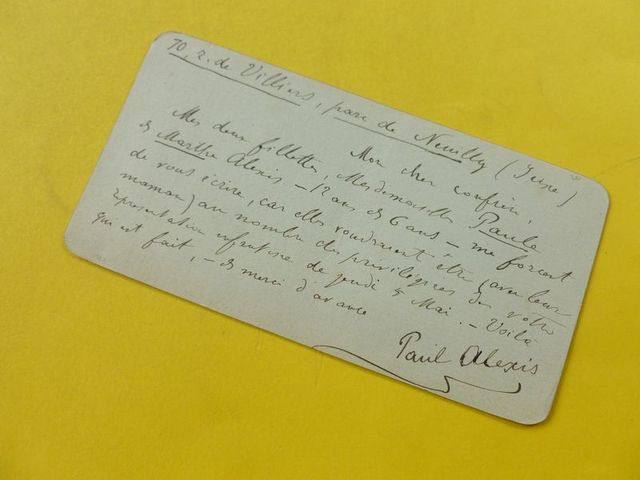 70, r. de Villiers, parc de Neuilly (Seine)
Mon cher confrère,
Mes deux fillettes, Mesdemoiselles Paule
& Marthe Alexis – 12 ans & 6 ans – me forcent
de vous écrire, car elles voudraient être (avec leur
maman) au nombre des privilégiés de votre
représentation enfantine de jeudi 5 Mai. – Voilà
qui est fait, – & merci d'avance
Paul Alexis